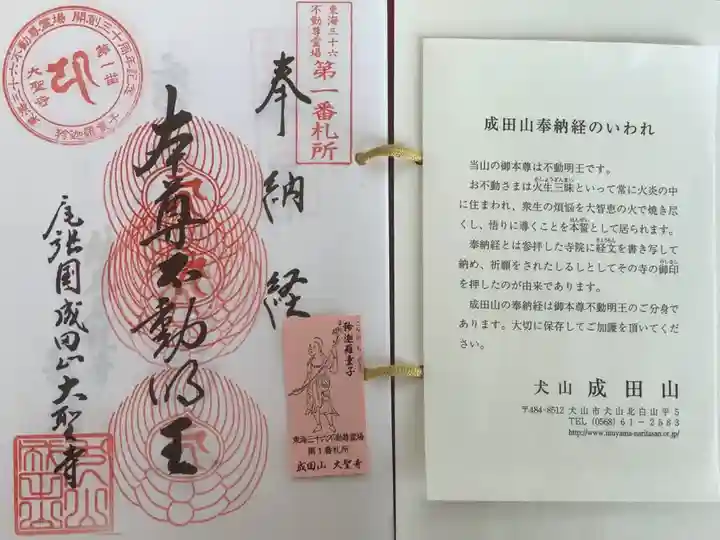 東海三十六不動尊霊場 開創三十周年記念
第一番
大聖寺
矜迦羅童子
東海三十六
不動尊霊場
第一番札所
奉納経
本尊不動明王
尾張国成田山大聖寺
こんがらどうじ
矜迦羅童子
東海三十六不動尊霊場
第1番札所
成田山 大聖寺
成田山奉納経のいわれ
当山の御本尊は不動明王です。
お不動さまは火生三昧といって常に火炎の中
に住まわれ、衆生の煩悩を大智恵の火で焼き尽
くし、悟りに導くことを本誓として居られます。
奉納経とは参拝した寺院に経文を書き写して
納め、祈願をされたしるしとしてその寺の御印
を押したのが由来であります。
成田山の奉納経は御本尊不動明王のご分身で
あります。大切に保存してご加護を頂いてくだ
さい。
犬山 成田山
〒484-8512 犬山市犬山北白山平5
TEL (0568) 61-2583
http://www.inuyama-naritasan.or.jp/